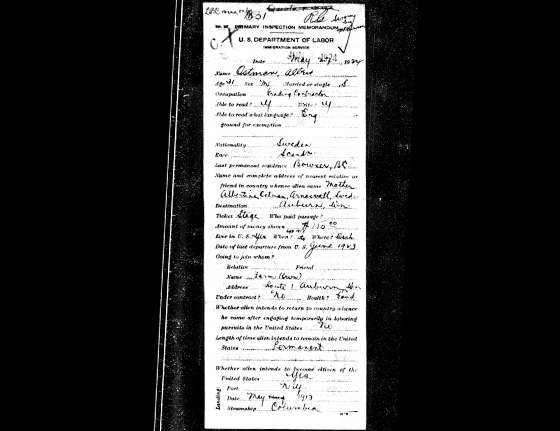 B31
PRIMARY INSPECTION MEMORANDUM
U. S. DEPARTMENT OF LABOR
IMMIGRATION SERVICE
Date May 1924
Name Ostman, Albert
Age 31 Sex M Married or single S
Occupation Grading Contractor
Able to read? Y Y
Able to read what language? Eng
ground for exemption
Nationality Sweden
Race Scand
Last permanent residence Bowser, BC
Name and complete address of nearest relative or
friend in country whence alien came Mother
Albertina Ostman, Swed
Destination Auburn, Wn
Ticket Stage Who paid passage?
Amount of money shown $ 150 00
Ever in U. S. Yes When? to Where? Wash
Date of last departure from U. S. June 1923
Going to join whom?
Relative Friend
Name Farm (own)
Address Route 1 Auburn Wn
Under contract? No Health? Good
Whether alien intends to return to country whence
he came after engaging temporarily in laboring
pursuits in the United States No
Length of time alien intends to remain in the United
States Permanent
Whether alien intends to become citizen of the
United States Yes
Landing:
Port N Y
Date May 1913
Steamship Columbia